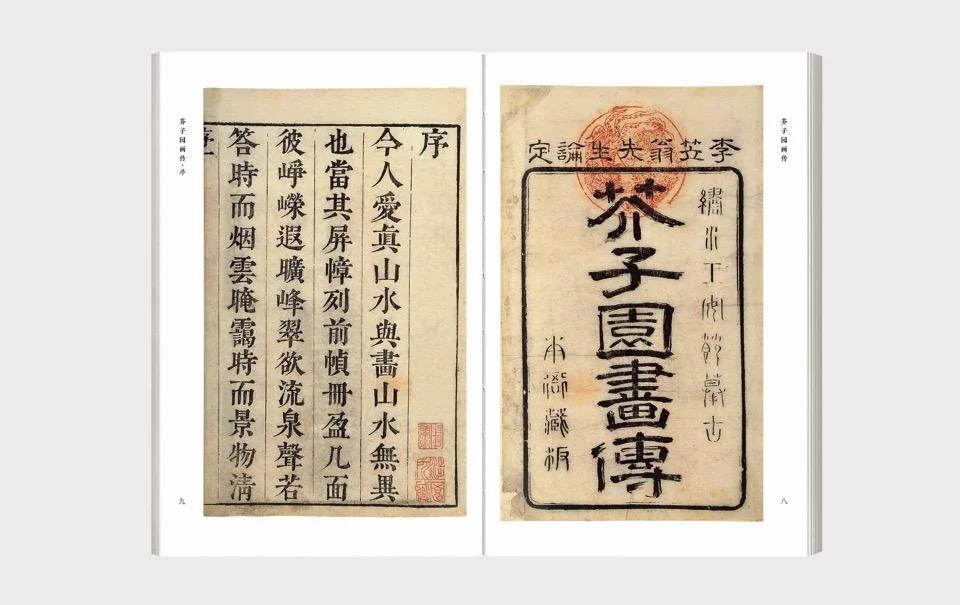 芥子园画传
八
李笠翁先生論定
繡水王安節摹古
芥子園畫傳
本衙藏板
序
今人愛真山水與畫山水無異
也當其屏幛列前幀冊盈几面
彼崢嶸遐曠峰翠欲流泉聲若
答時而烟雲晻靄時而景物清
芥子园画传·序
九